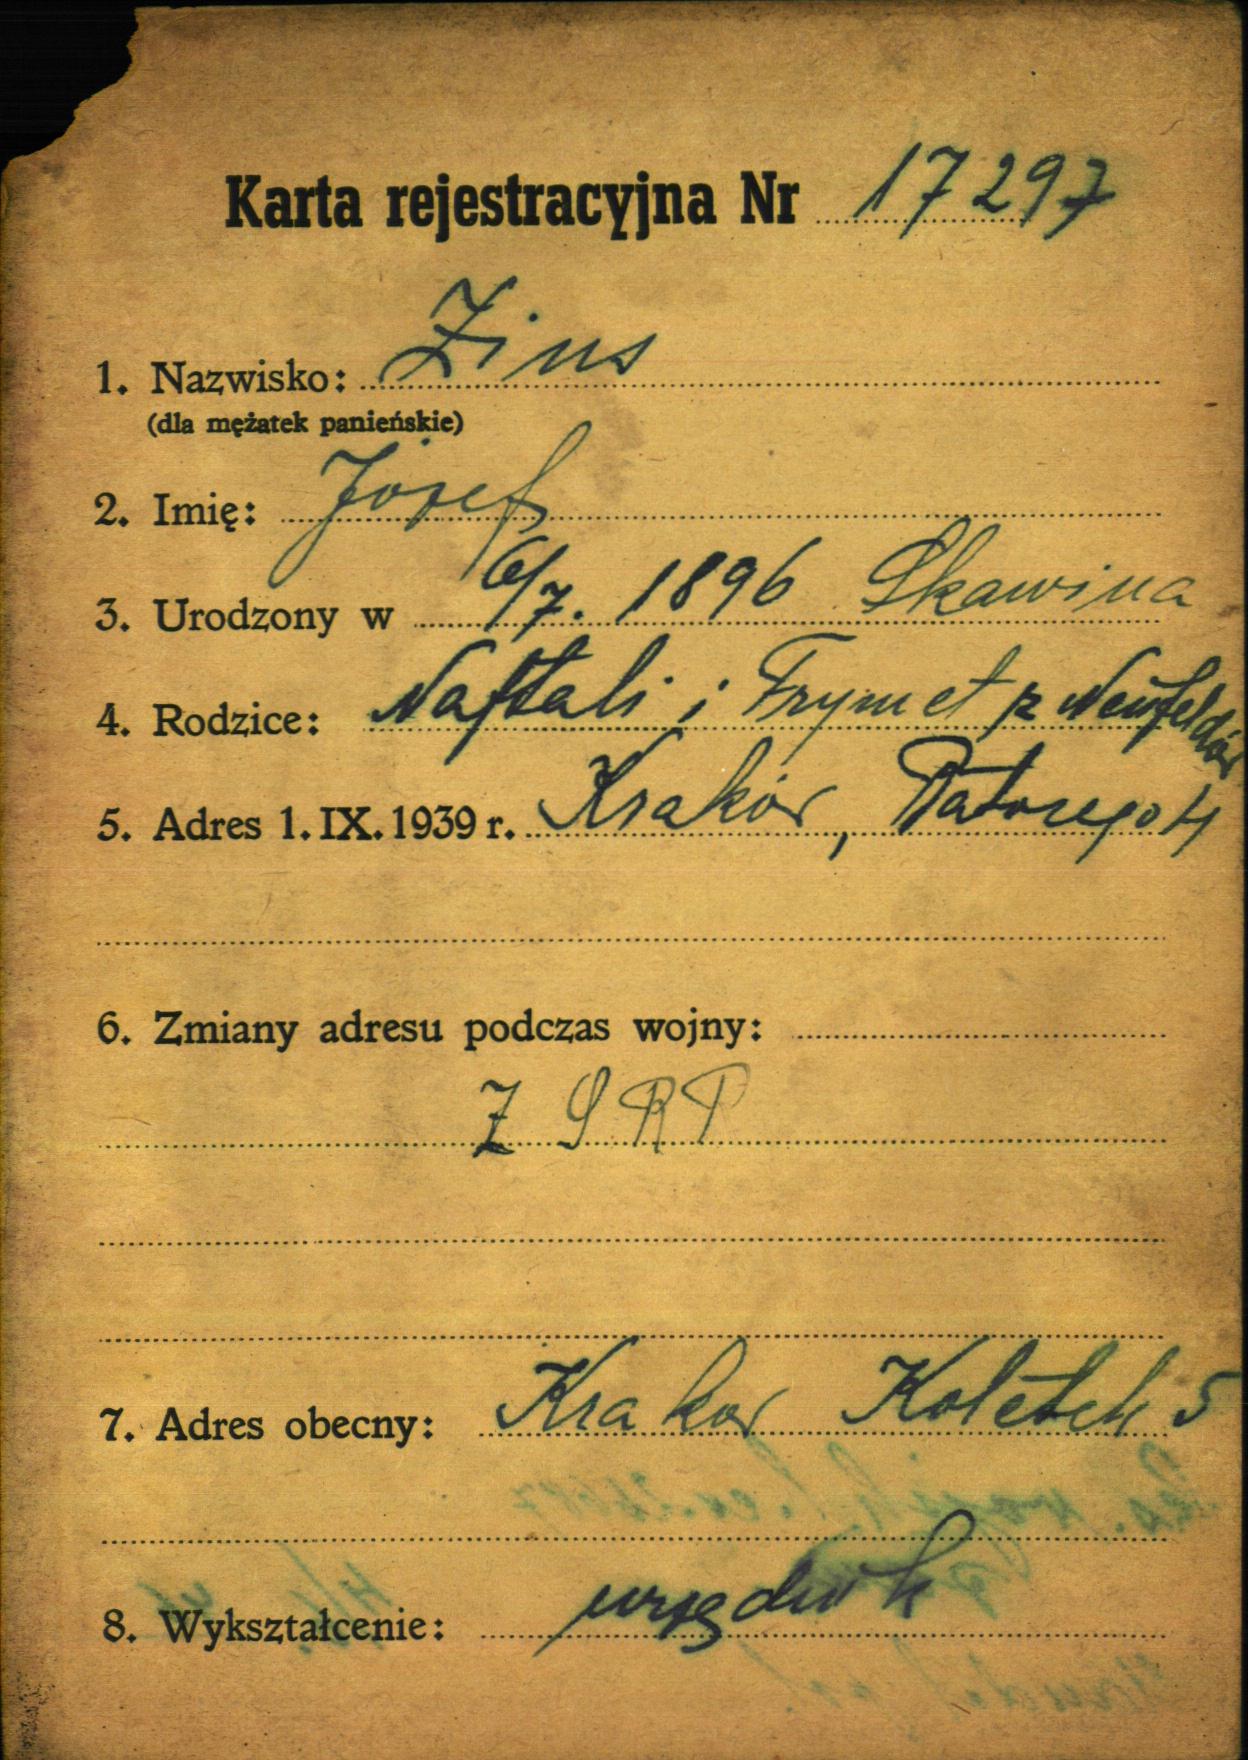 Karta rejestracyjna Nr 17297
1. Nazwisko: Zins
(dla mężatek panieńskie)
2. Imię: Józef
3. Urodzony w 6/7. 1896 Skawina
4. Rodzice: Naftali i Frymet z Neufeldów
5. Adres 1. IX. 1939 r. Kraków, Batorego 4
6. Zmiany adresu podczas wojny:
Z S R R
7. Adres obecny: Krakow Koletek 5
8. Wykształcenie: urzędnik